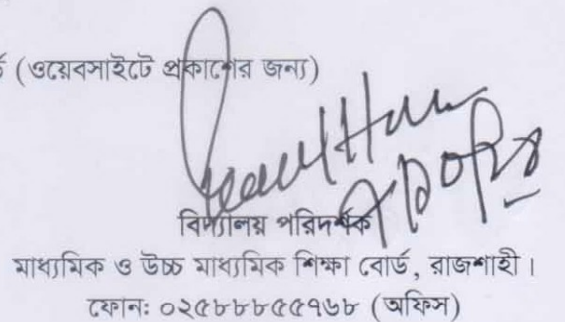 (ওয়েবসাইটে প্রকাশের জন্য)
বিদ্যালয় পরিদর্শক
মাধ্যমিক ও উচ্চ মাধ্যমিক শিক্ষা বোর্ড, রাজশাহী।
ফোন: ০২৫৮৮৮৫৫৭৬৮ (অফিস)